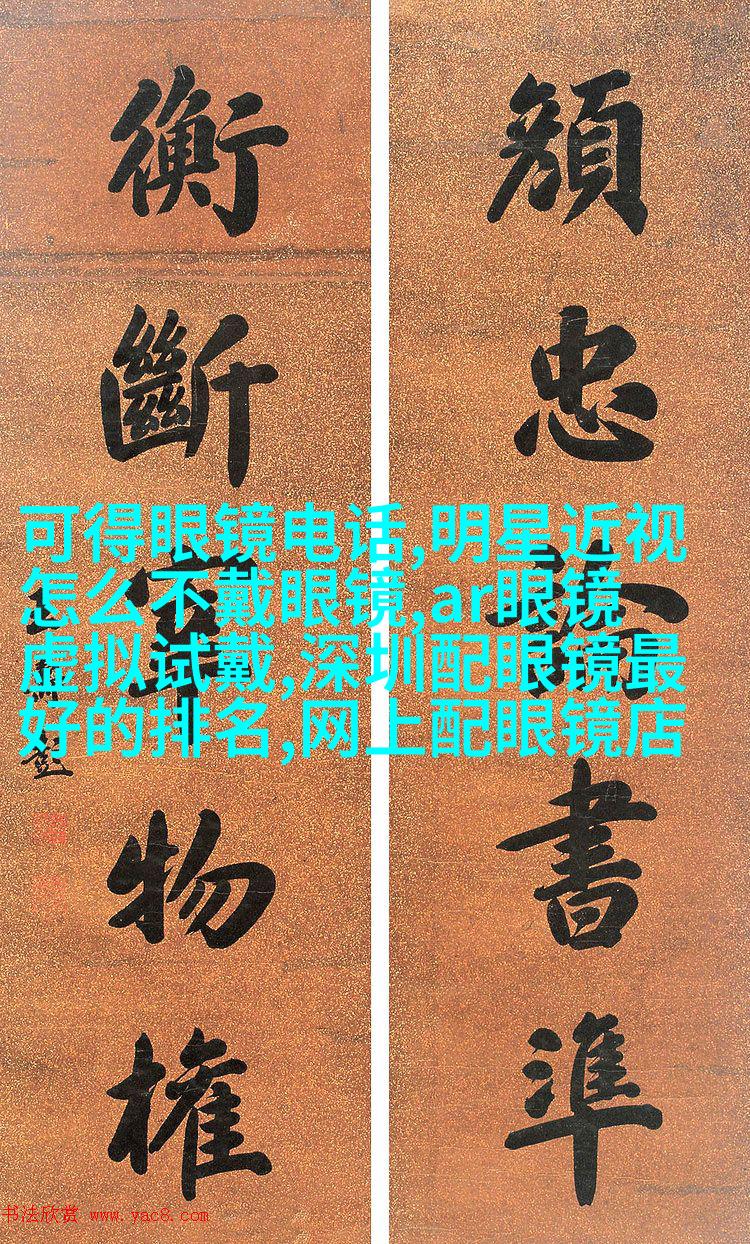 顏忠書準
衡斷物權
可得眼镜电话,明星近视
怎么不戴眼镜,ar眼镜
虚拟试戴,深圳配眼镜最
好的排名,网上配眼镜店
书法欣赏 www.yac8.com